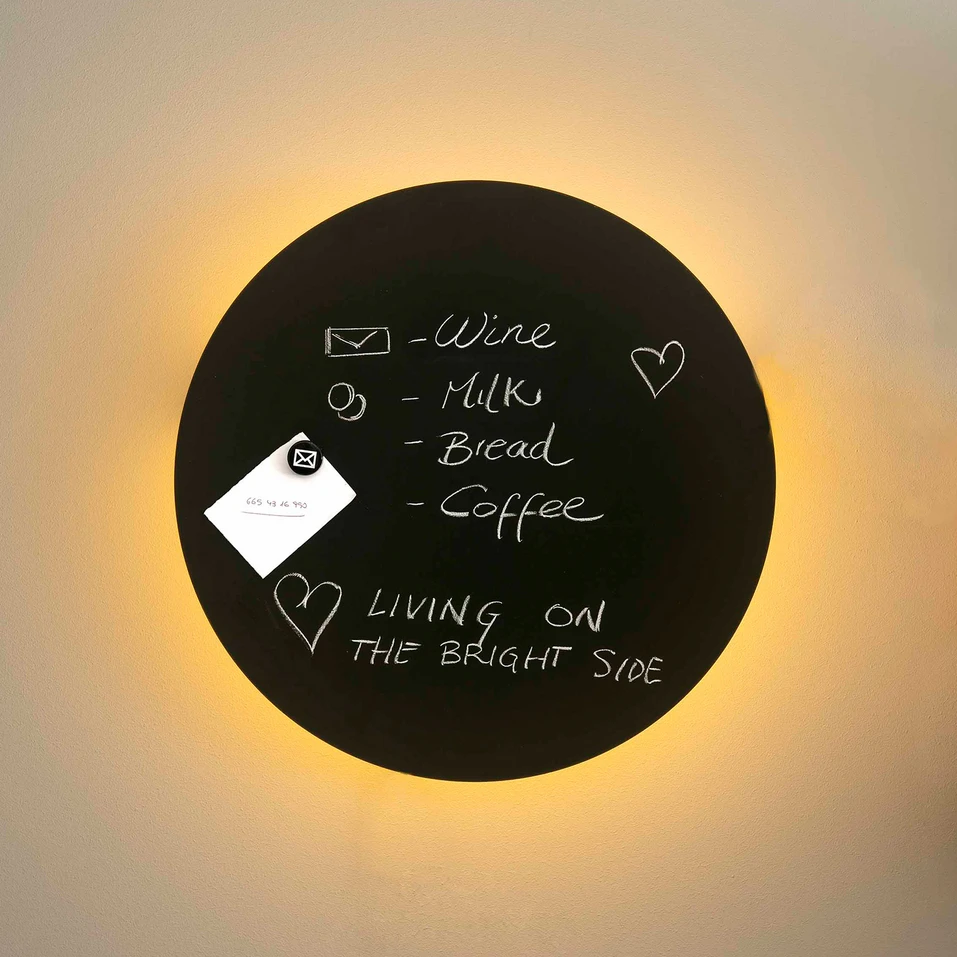 - Wine
- Milk
- Bread
- Coffee
665 43 16 990
LIVING ON
THE BRIGHT SIDE